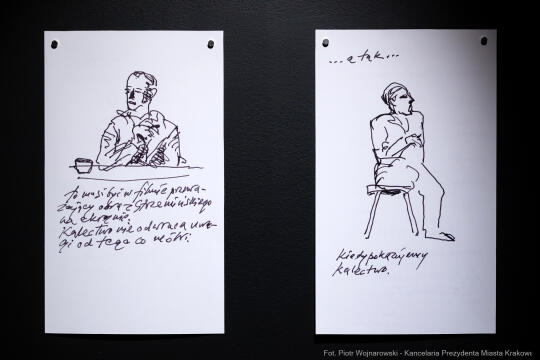 To musi być w filmie przewa-
żający obraz Strzemińskiego
na ekranie.
Kalectwo nie odwraca uwa-
gi od tego co mówi.
...a tak...
Kiedy pokazujemy
kalectwo.
Fot. Piotr Wojnarowski - Kancelaria Prezydenta Miasta Krakowa